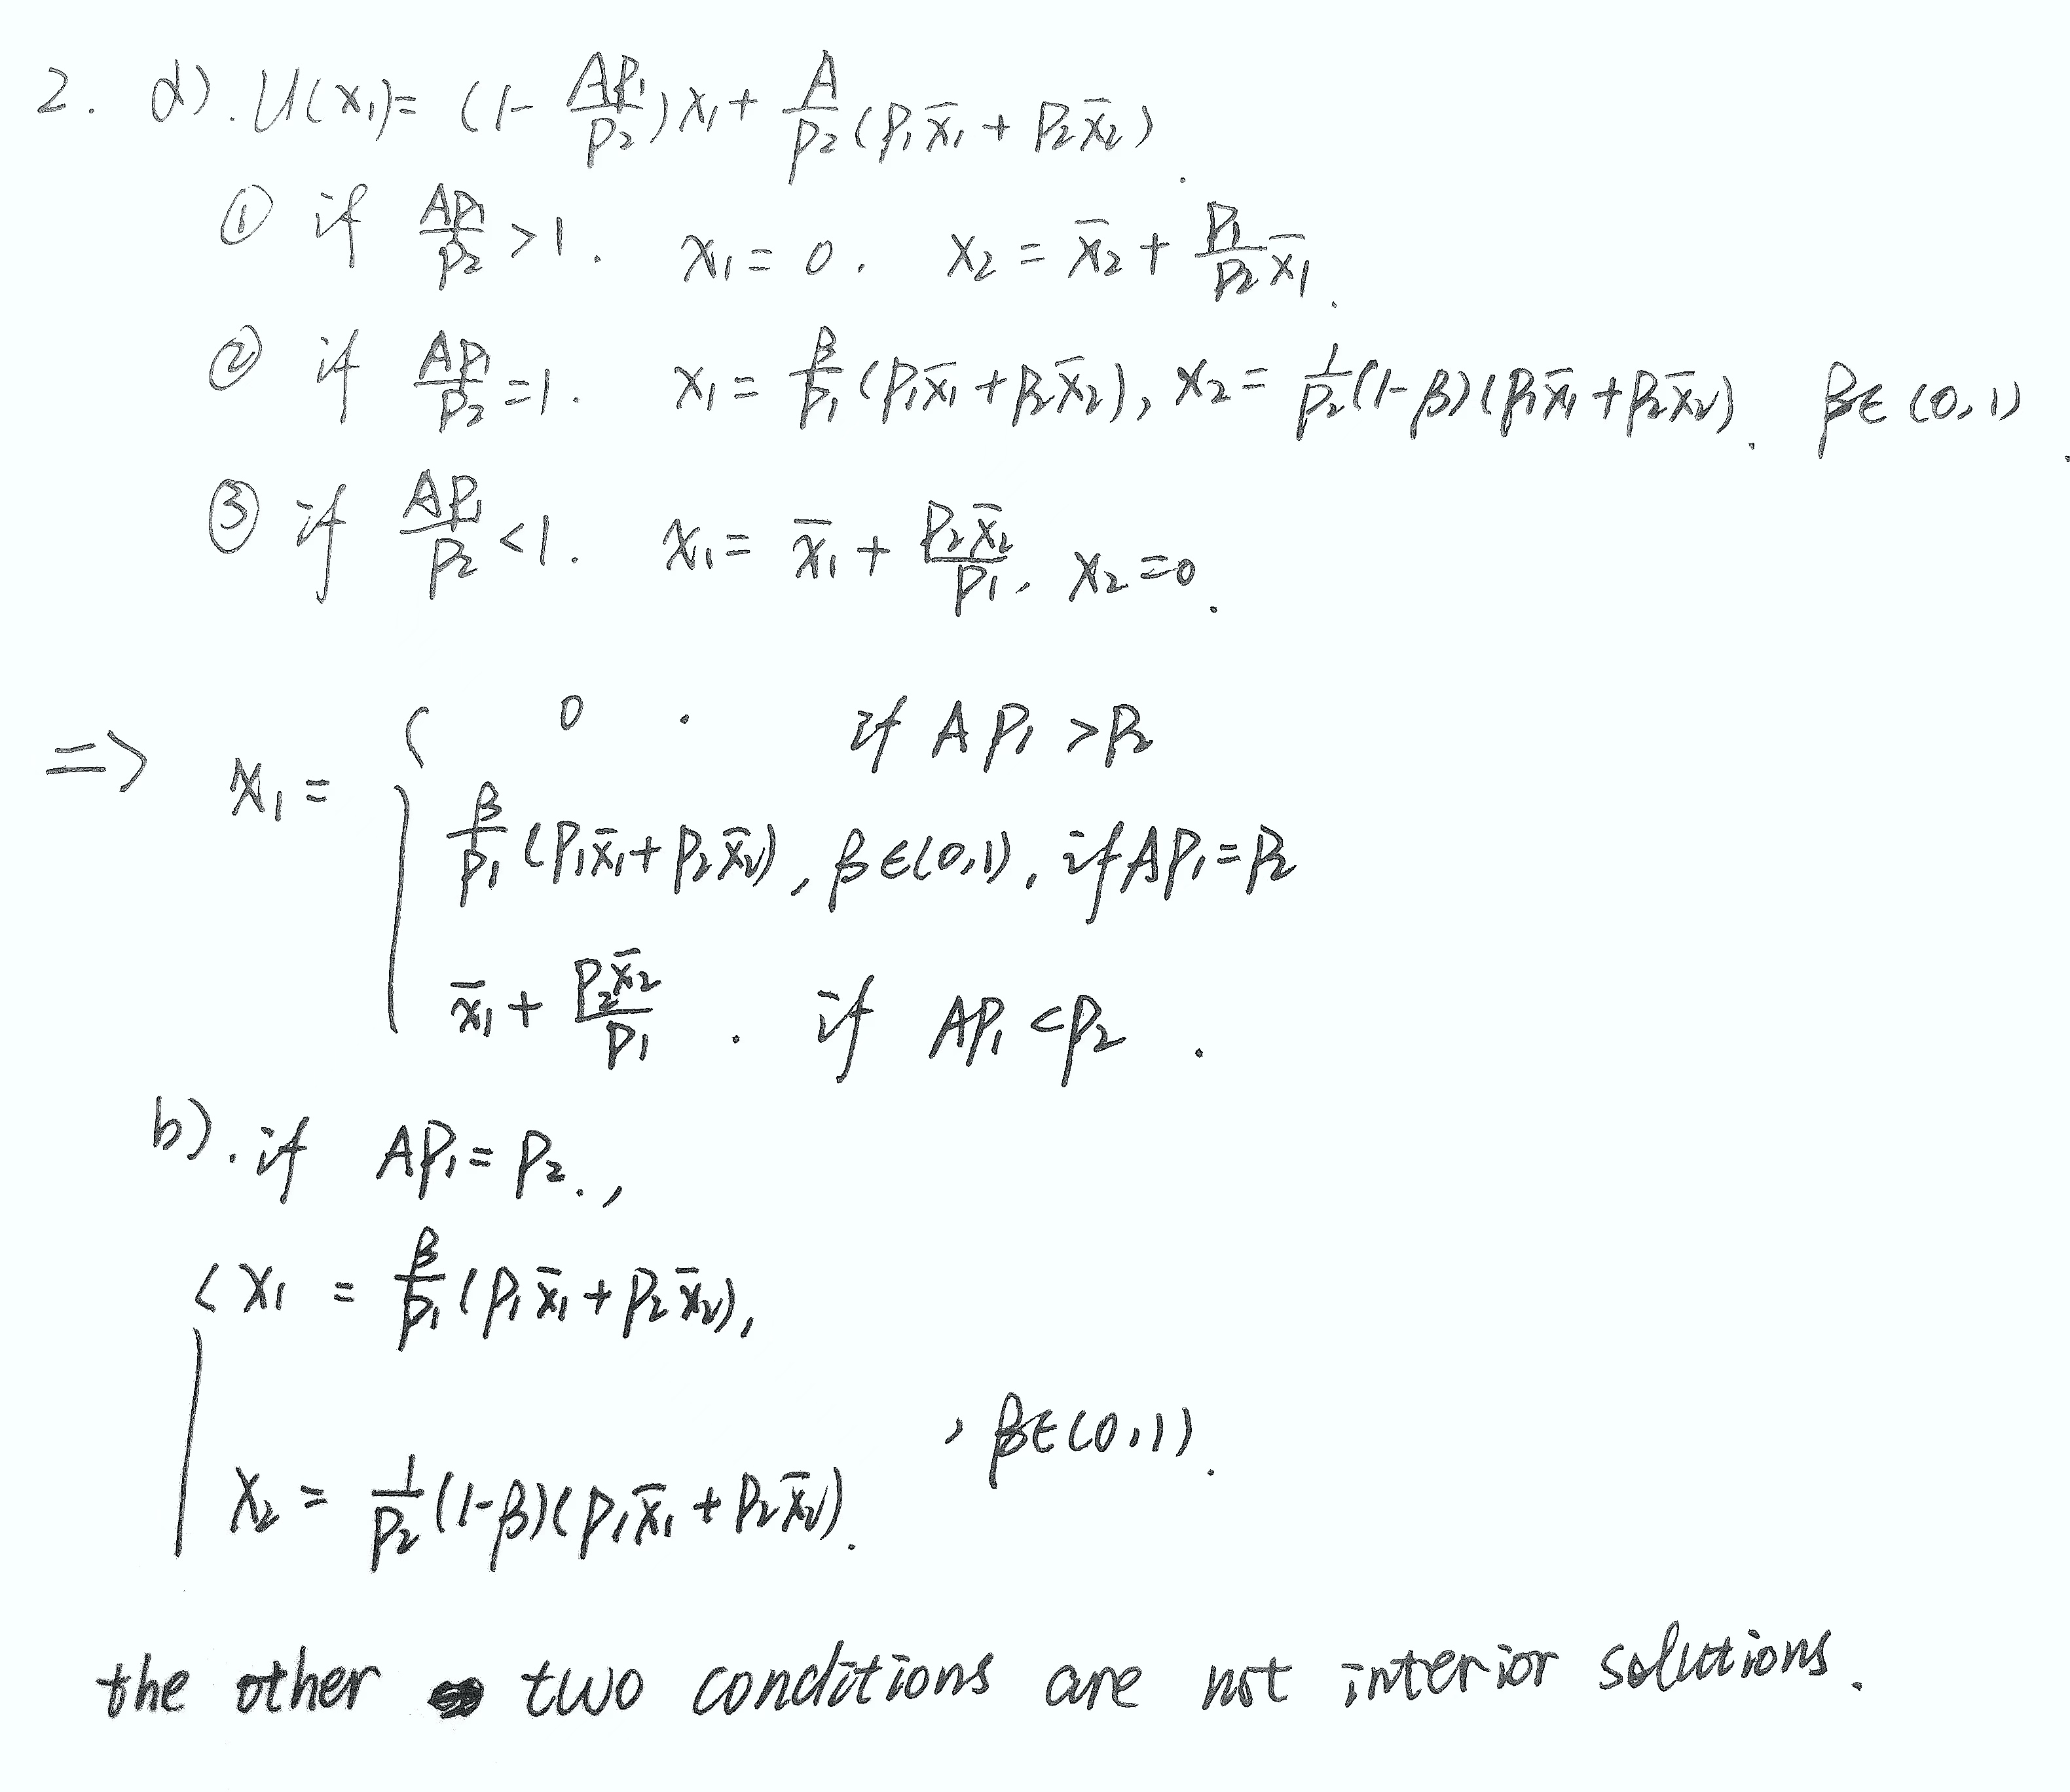 2. a). U(x₁) = (1 - Ap₁/p₂)x₁ + A/p₂(p₁x̄₁ + p₂x̄₂).
① if Ap₁/p₂ > 1. x₁ = 0. x₂ = x̄₂ + p₁/p₂ x̄₁.
② if Ap₁/p₂ = 1. x₁ = β/p₁(p₁x̄₁ + p₂x̄₂), x₂ = 1/p₂(1-β)(p₁x̄₁ + p₂x̄₂). β∈(0,1).
③ if Ap₁/p₂ < 1. x₁ = x̄₁ + p₂x̄₂/p₁. x₂ = 0.
=> x₁ = { 0 . if Ap₁ > p₂
β/p₁(p₁x̄₁ + p₂x̄₂), β∈(0,1). if Ap₁ = p₂
x̄₁ + p₂x̄₂/p₁ . if Ap₁ < p₂ .
b). if Ap₁ = p₂.,
{ x₁ = β/p₁(p₁x̄₁ + p₂x̄₂),
, β∈(0,1).
x₂ = 1/p₂(1-β)(p₁x̄₁ + p₂x̄₂).
the other two conditions are not interior solutions.